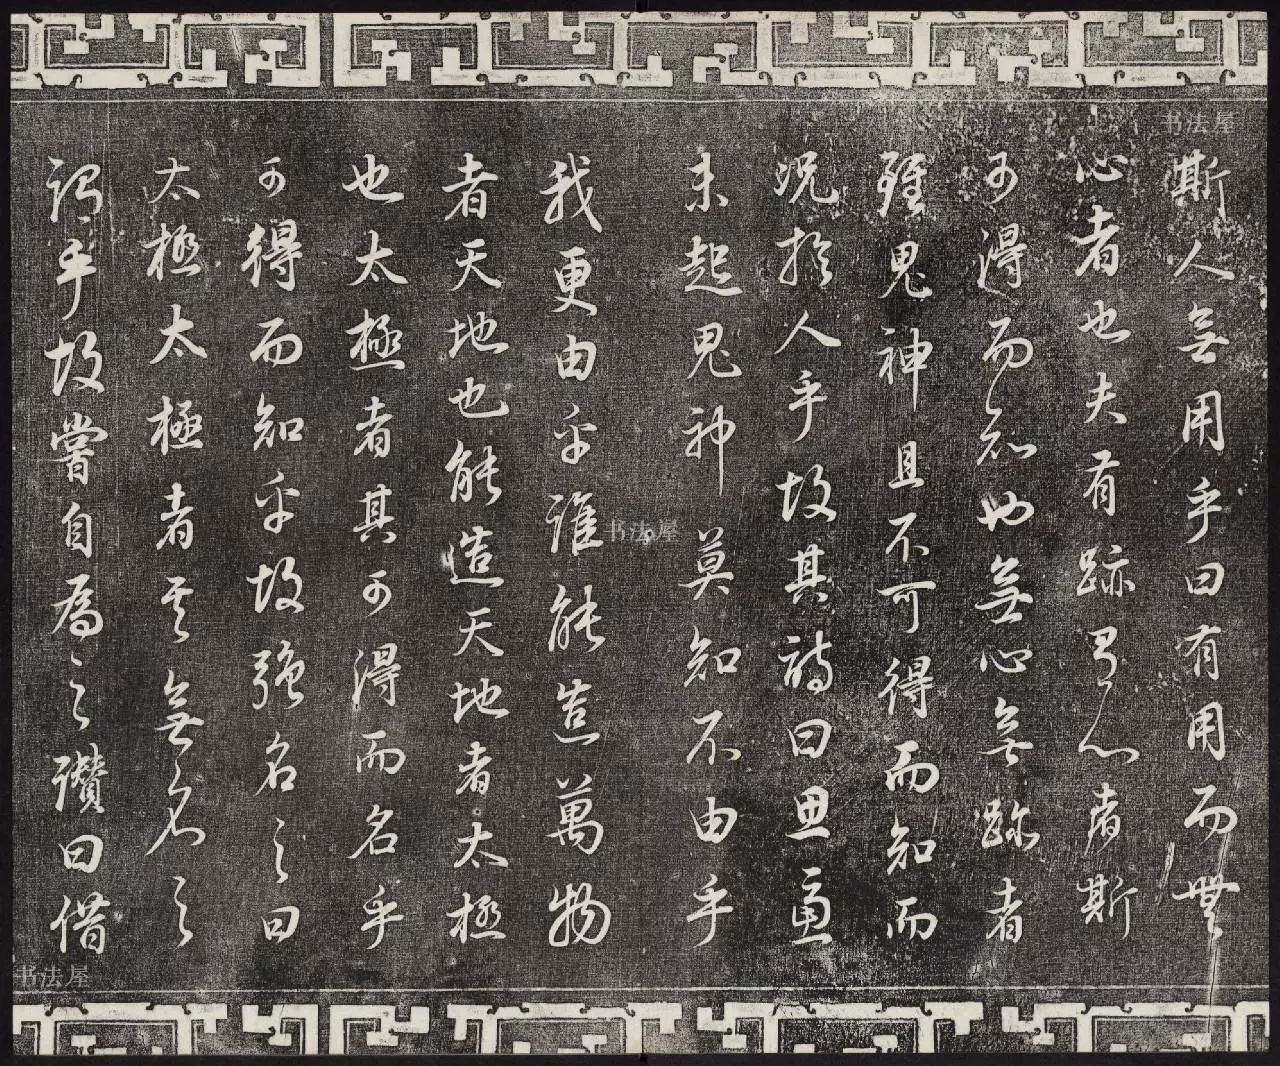 斯人無用乎曰有用而無
心者也夫有跡有心者斯
可得而知也無心無跡者
雖鬼神且不可得而知而
況於人乎故其詩曰思慮
未起鬼神莫知不由乎
我更由乎誰能造萬物
者天地也能造天地者太極
也太極者其可得而名乎
可得而知乎故强名之曰
太極太極者其無名之
謂乎故嘗自爲之讚曰借
书法屋
书法屋
书法屋